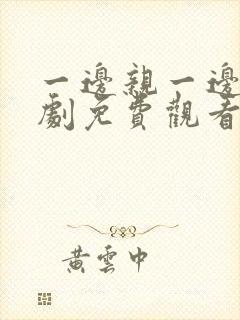 一邊親一邊
劇免費觀看
黃雲中